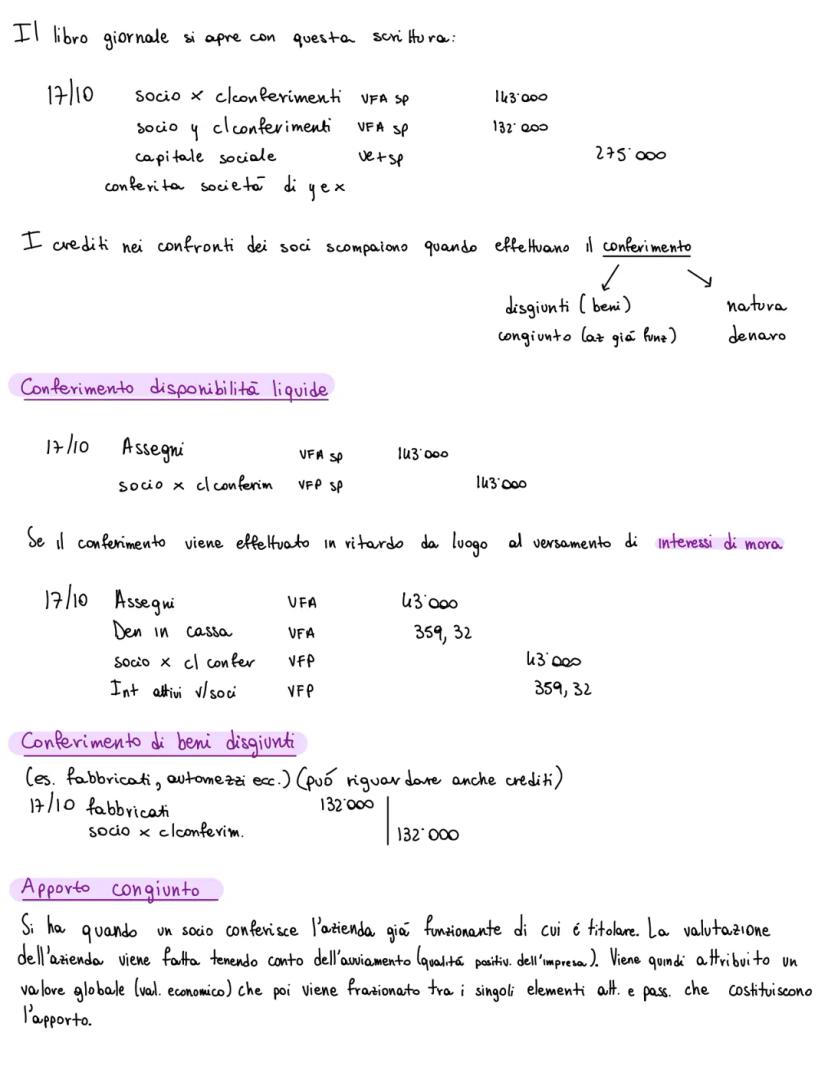 Il libro giornale si apre con questa scrittura:
17/10 socio x c/conferimenti VFA SP 143'000
socio y c/conferimenti VFA SP 132'000
capitale sociale ve+sp 275'000
conferita società di y e x
I crediti nei confronti dei soci scompaiono quando effettuano il conferimento
disgiunti (beni) natura
congiunto (az già funz) denaro
Conferimento disponibilità liquide
17/10 Assegni VFA SP 143'000
socio x c/conferim VFP SP 143'000
Se il conferimento viene effettuato in ritardo da luogo al versamento di interessi di mora
17/10 Assegni VFA 43'000
Den in cassa VFA 359,32
socio x c/confer VFP 43'000
Int attivi v/soci VFP 359,32
Conferimento di beni disgiunti
(es. fabbricati, automezzi ecc.) (può riguardare anche crediti)
17/10 fabbricati 132'000
socio x c/conferim. 132'000
Apporto congiunto
Si ha quando un socio conferisce l'azienda già funzionante di cui é titolare. La valutazione
dell'azienda viene fatta tenendo conto dell'avviamento (qualità positiv. dell'impresa). Viene quindi attribuito un
valore globale (val. economico) che poi viene frazionato tra i singoli elementi att. e pass. che costituiscono
l'apporto.